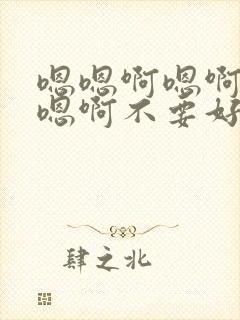 嗯嗯啊嗯啊
嗯啊不要好
肆之北